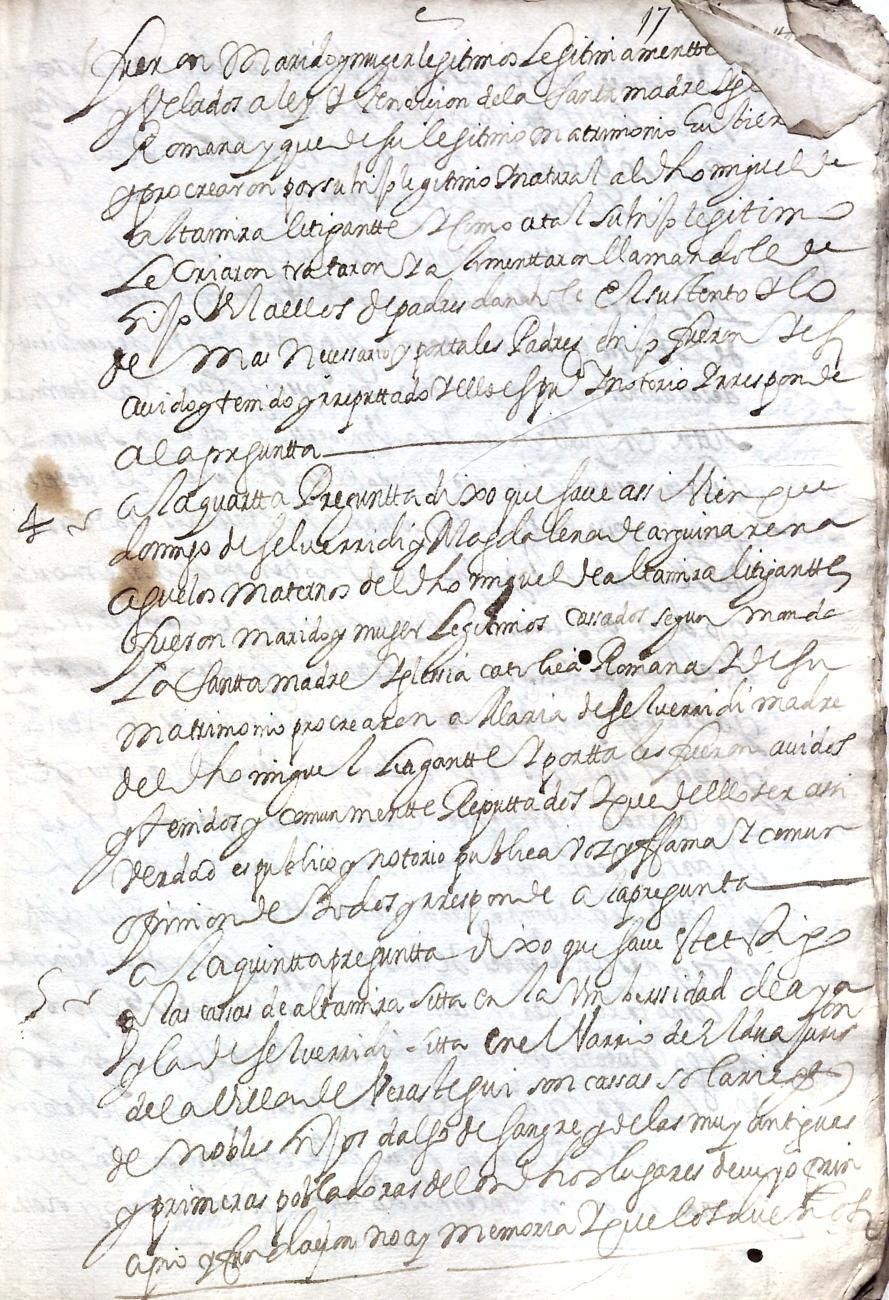 17
fueron Marido y muger legitimos Legitimamentte
y Velados a ley y Vendicion de la Santa madre
Romana y que de su legitimo matrimonio Hubier
y procrearon por su hijo legitimo y natural al dho miguel de
altamira litigantte y Como a tal su hijo legitimo
Le Criaron trataron y alimenttaron llamandole de
hijo y el a ellos de padres dandole el sustento y lo
de Mas Necessario y por tales Padres e hijo fueron y es
auido y tenido y rreputtado y ello es puco y notorio y rresponde
a la preguntta
4 a la quartta Preguntta dixo que save assi Vien que
domingo de selverridi y Magdalena de arguinarena
aguelos maternos del dho miguel de altamira litigantte
fueron marido y muger Legitimos cassados segun manda
La Santta madre Yglessia catolica Romana y de su
matrimonio procrearon a Maria de selverridi madre
del dho miguel Litigantte y por tales fueron auidos
y tenidos y comunmentte Reputtados y que dello ser assi
verdad es publico y notorio publica voz y ffama y comun
opinion de todos y rresponde a la pregunta
5 a la quintta preguntta dixo que save este testigo
q las cassas de altamira sitta en la Unibersidad de aya
y la de selverridi sitta en el Varrio de Eldua Juris on
de la Villa de Verastegui son cassas solariegas
de Nobles hijos dalgo de sangre y de las muy antiguas
y primeras pobladoras de los dhos lugares de cuyo prin
cipio y fundacion no ay memoria y que los dueños